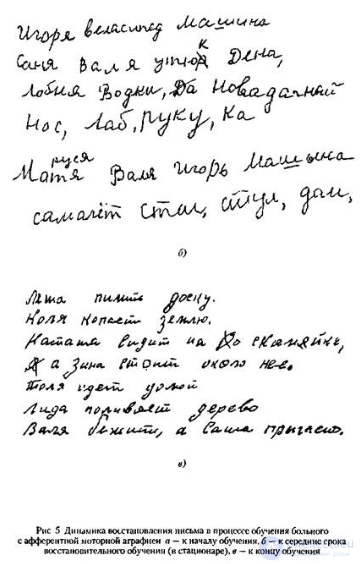 Игоря веласипед Машина
Саня Валя утюк Дена,
Лобня Водки, Да Новадачный
Нос, Лаб, Руку, Ка
руся
Матя Валя Игорь Машына
самалёт Стал, стул, дам,
б)
Лёша пилит доску.
Коля копает землю.
Наташа сидит на скамейке,
а Зина стоит около нее.
Толя идет домой
Лида поливает дерево
Валя бежит, а Саша прыгает.
в)
Рис 5 Динамика восстановления письма в процессе обучения больного
с афферентной моторной аграфией а — к началу обучения, б — к середине срока
восстановительного обучения (в стационаре), в — к концу обучения